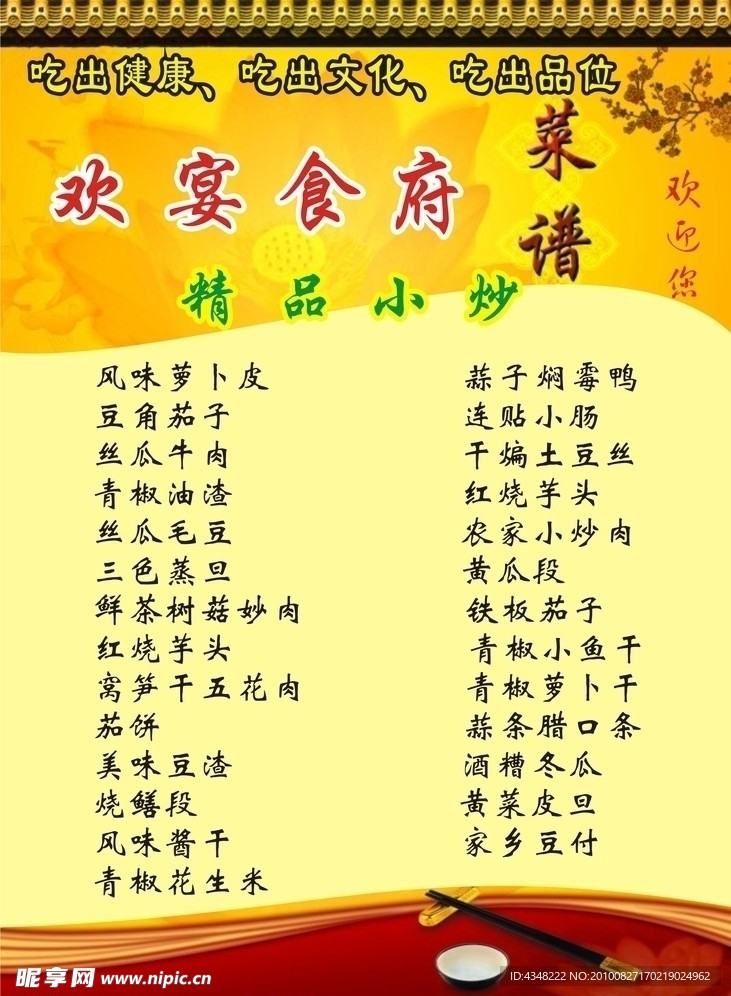 吃出健康、吃出文化、吃出品位
欢宴食府
菜谱
欢迎您
精品小炒
风味萝卜皮
豆角茄子
丝瓜牛肉
青椒油渣
丝瓜毛豆
三色蒸旦
鲜茶树菇妙肉
红烧芋头
窝笋干五花肉
茄饼
美味豆渣
烧鳝段
风味酱干
青椒花生米
蒜子焖霉鸭
连贴小肠
干煸土豆丝
红烧芋头
农家小炒肉
黄瓜段
铁板茄子
青椒小鱼干
青椒萝卜干
蒜条腊口条
酒糟冬瓜
黄菜皮旦
家乡豆付
昵享网 www.nipic.cn
ID:4348222 NO:20100827170219024962